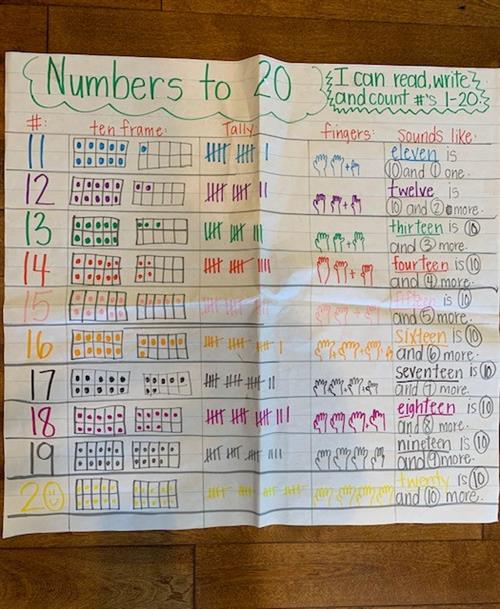 Numbers to 20
I can read, write
and count #'s 1-20.
#: ten frame: Tally fingers: sounds like:
11 eleven is
10 and 1 one.
12 twelve is
10 and 2 more.
13 thirteen is 10
and 3 more.
14 fourteen is 10
and 4 more.
15 fifteen is 10
and 5 more.
16 sixteen is 10
and 6 more.
17 seventeen is 10
and 7 more.
18 eighteen is 10
and 8 more.
19 nineteen is 10
and 9 more.
20 twenty is 10
and 10 more.